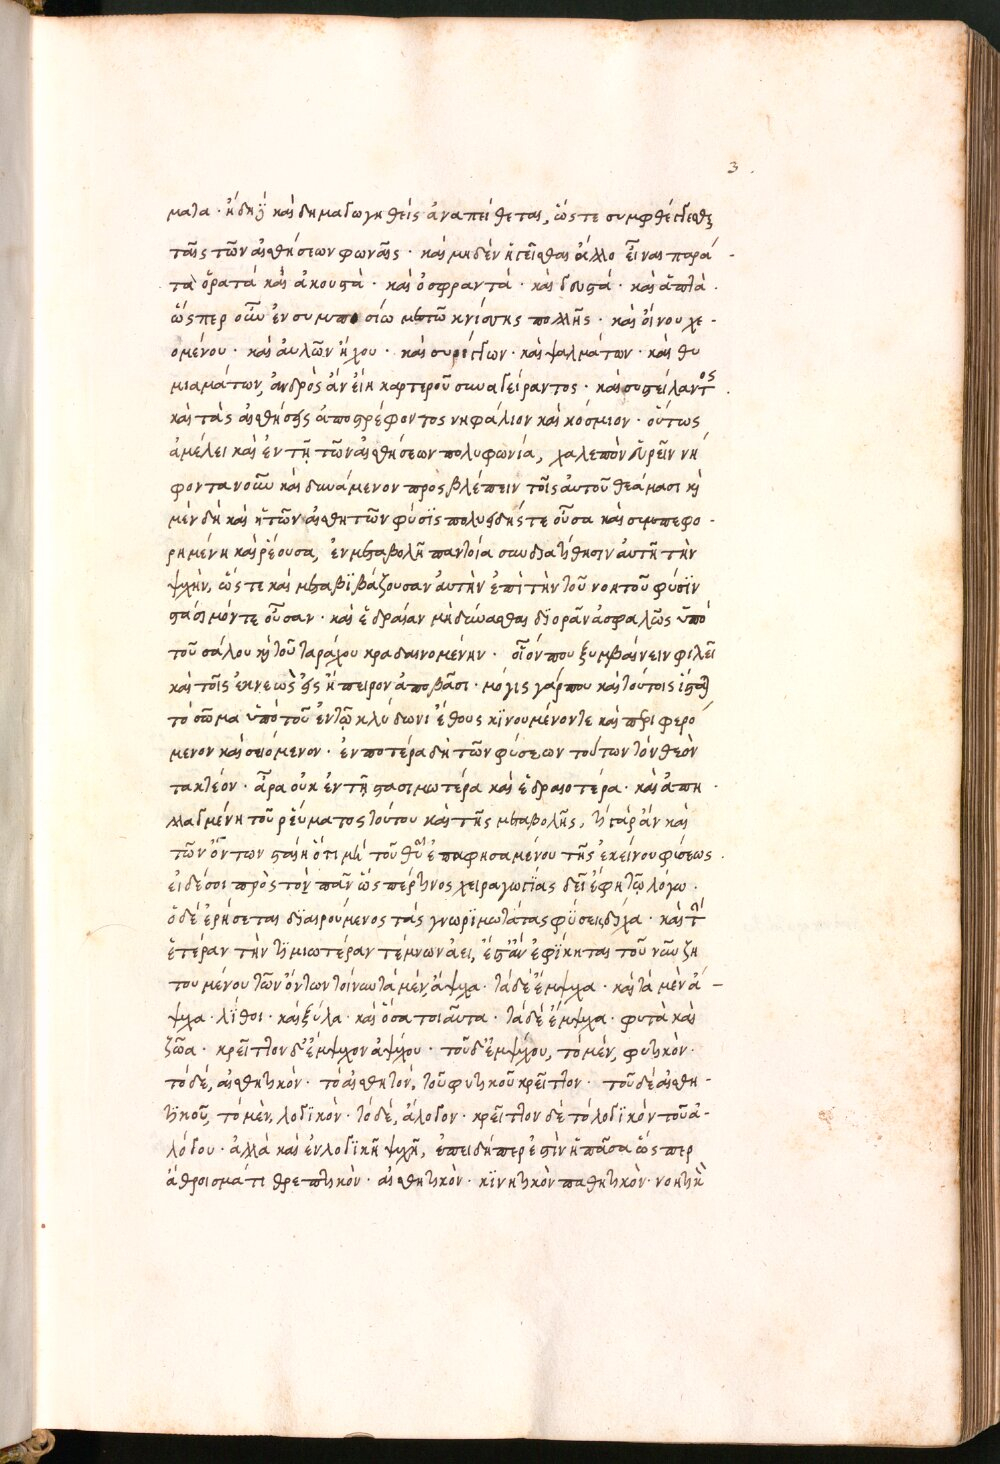 3.
ματα · ἤδη γὰρ καὶ δημαγωγηθεὶς ἀναπείθεται, ὥστε συμφθέγγεσθαι
ταῖς τῶν αἰσθήσεων φωναῖς · καὶ μηδὲν ἡγεῖσθαι ἄλλο εἶναι παρά -
τὰ ὁρατά καὶ ἀκουστὰ · καὶ ὀσφραντά · καὶ γευστά · καὶ ἁπτὰ ·
ὥσπερ οὖν ἐν συμποσίω μεστῶ κνίσσης πολλῆς · καὶ οἴνου χε -
ομένου · καὶ αὐλῶν ἤχου · καὶ συρίγγων · καὶ ψαλμάτων · καὶ θυ
μιαμάτων, ἀνδρὸς ἂν εἴη καρτεροῦ συναγείραντος · καὶ συστείλαντος ·
καὶ τὰς αἰσθήσεις ἀποστρέφοντος νηφάλιον καὶ κόσμιον · οὕτως
ἀμέλει καὶ ἐν τῇ τῶν αἰσθήσεων πολυφωνία, χαλεπὸν εὑρεῖν νή
φοντα νοῦν καὶ δυνάμενον προσβλέπειν τοῖς αὑτοῦ θεάμασι καὶ
μὲν δὴ καὶ ἡ τῶν αἰσθητῶν φύσϊς πολυειδής τε οὖσα καὶ συμπεφο -
ρημένη καὶ ῥέουσα, ἐν μεταβολῆ παντοία συνδιατίθησιν αὑτῆ τὴν
ψχὴν, ὥστε καὶ μεταβϊβάζουσαν αὐτὴν ἐπὶ τὴν τοῦ νοητοῦ φύσϊν
στάσιμόν τε οὖσαν · καὶ ἑδραίαν μὴ δύνασθαι διορᾶν ἀσφαλῶς ὑπό
τοῦ σάλου καὶ τοῦ ταράχου κραδαινομένην · οἷόν που ξυμβαίνειν φιλεῖ
καὶ τοῖς ἐκ νεὼς εἰς ἤπειρον ἀποβᾶσι · μόγις γάρ που καὶ τούτοις ἵσταται
τὸ σῶμα ὑπὸ τοῦ ἐν τῶ κλύδωνι ἔθους κϊνούμενόν τε καὶ περιφερό
μενον καὶ σειόμενον · ἐν ποτέρα δὴ τῶν φύσεων τούτων τὸν θεὸν
τακτέον · ἆρα οὐκ ἐν τῇ στασιμωτέρα καὶ ἑδραιοτέρα · καὶ ἀπη ·
λλαγμένη τοῦ ῥεύματος τούτου καὶ τῆς μεταβολῆς, τί γὰρ ἂν καὶ
τῶν ὄντων σταίη ὅτι μὴ τοῦ θεοῦ ἐπαφησαμένου τῆς ἐκείνου φύσεως ·
εἰ δέ σοι πρὸς τὸ πᾶν ὥσπέρ τινος χειραγωγίας δεῖ ἔφη τῶ λόγω ·
ὁ δὲ ἐρήσεται διαιρούμενος τὰς γνωριμωτάτας φύσεις δίχα · καὶ τὴν
ἑτέραν τὴν τϊμιωτέραν τέμνων ἀει, ἔστ' ἂν ἐφίκηται τοῦ νῦν ζη
τουμένου τῶν ὄντων τοίνυν τὰ μὲν, ἄψχα · τὰ δὲ ἔμψχα · καὶ τὰ μὲν ἄ -
ψχα · λϊθοι · καὶ ξύλα · καὶ ὅσα τοιαῦτα · τὰ δὲ ἔμψχα · φυτὰ καὶ
ζῶα · κρεῖττον δ' ἔμψχον ἀψύχου · τοῦ δ' ἐμψύχου, τὸ μέν, φυτικόν ·
τὸ δέ, αἰσθητικόν · τὸ αἰσθητικόν, τοῦ φυτικοῦ κρεῖττον · τοῦ δὲ αἰσθη -
τϊκοῦ, τὸ μὲν, λογϊκὸν · τὸ δέ, ἄλογον · κρεῖττον δὲ τὸ λογϊκὸν τοῦ ἀ -
λόγου · ἀλλὰ καὶ ἐν λογϊκῆ ψχῇ, ἐπειδήπερ ἐστὶν ἡ πᾶσα ὥσπερ
ἄθροισμά τι θρεπτικὸν · αἰσθητικὸν · κϊνητικὸν παθητικὸν · νοητικὸν